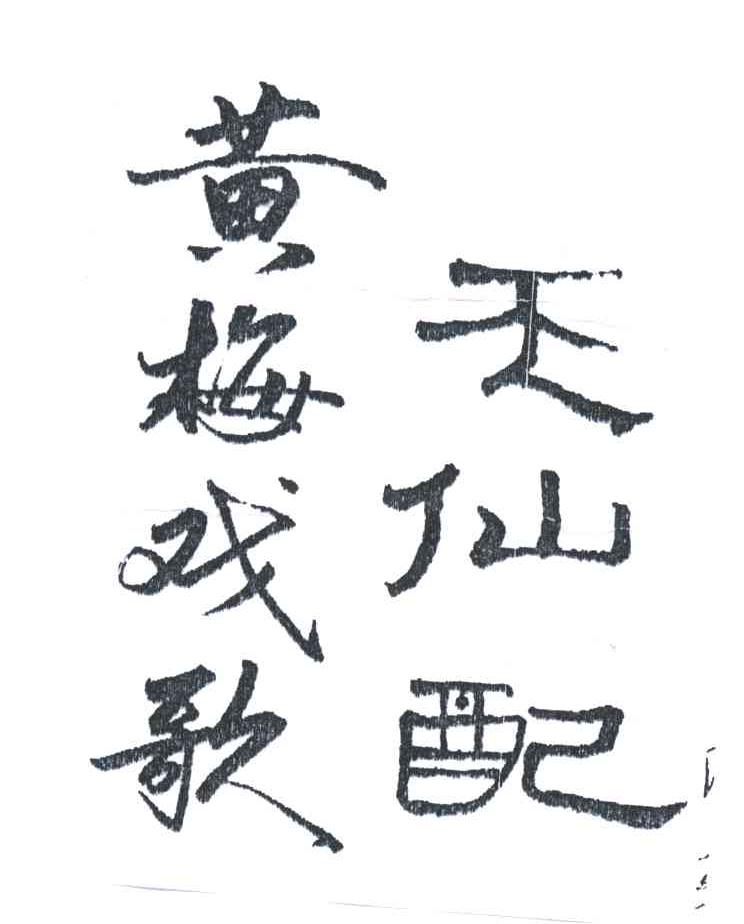 天仙配
黄梅戏歌